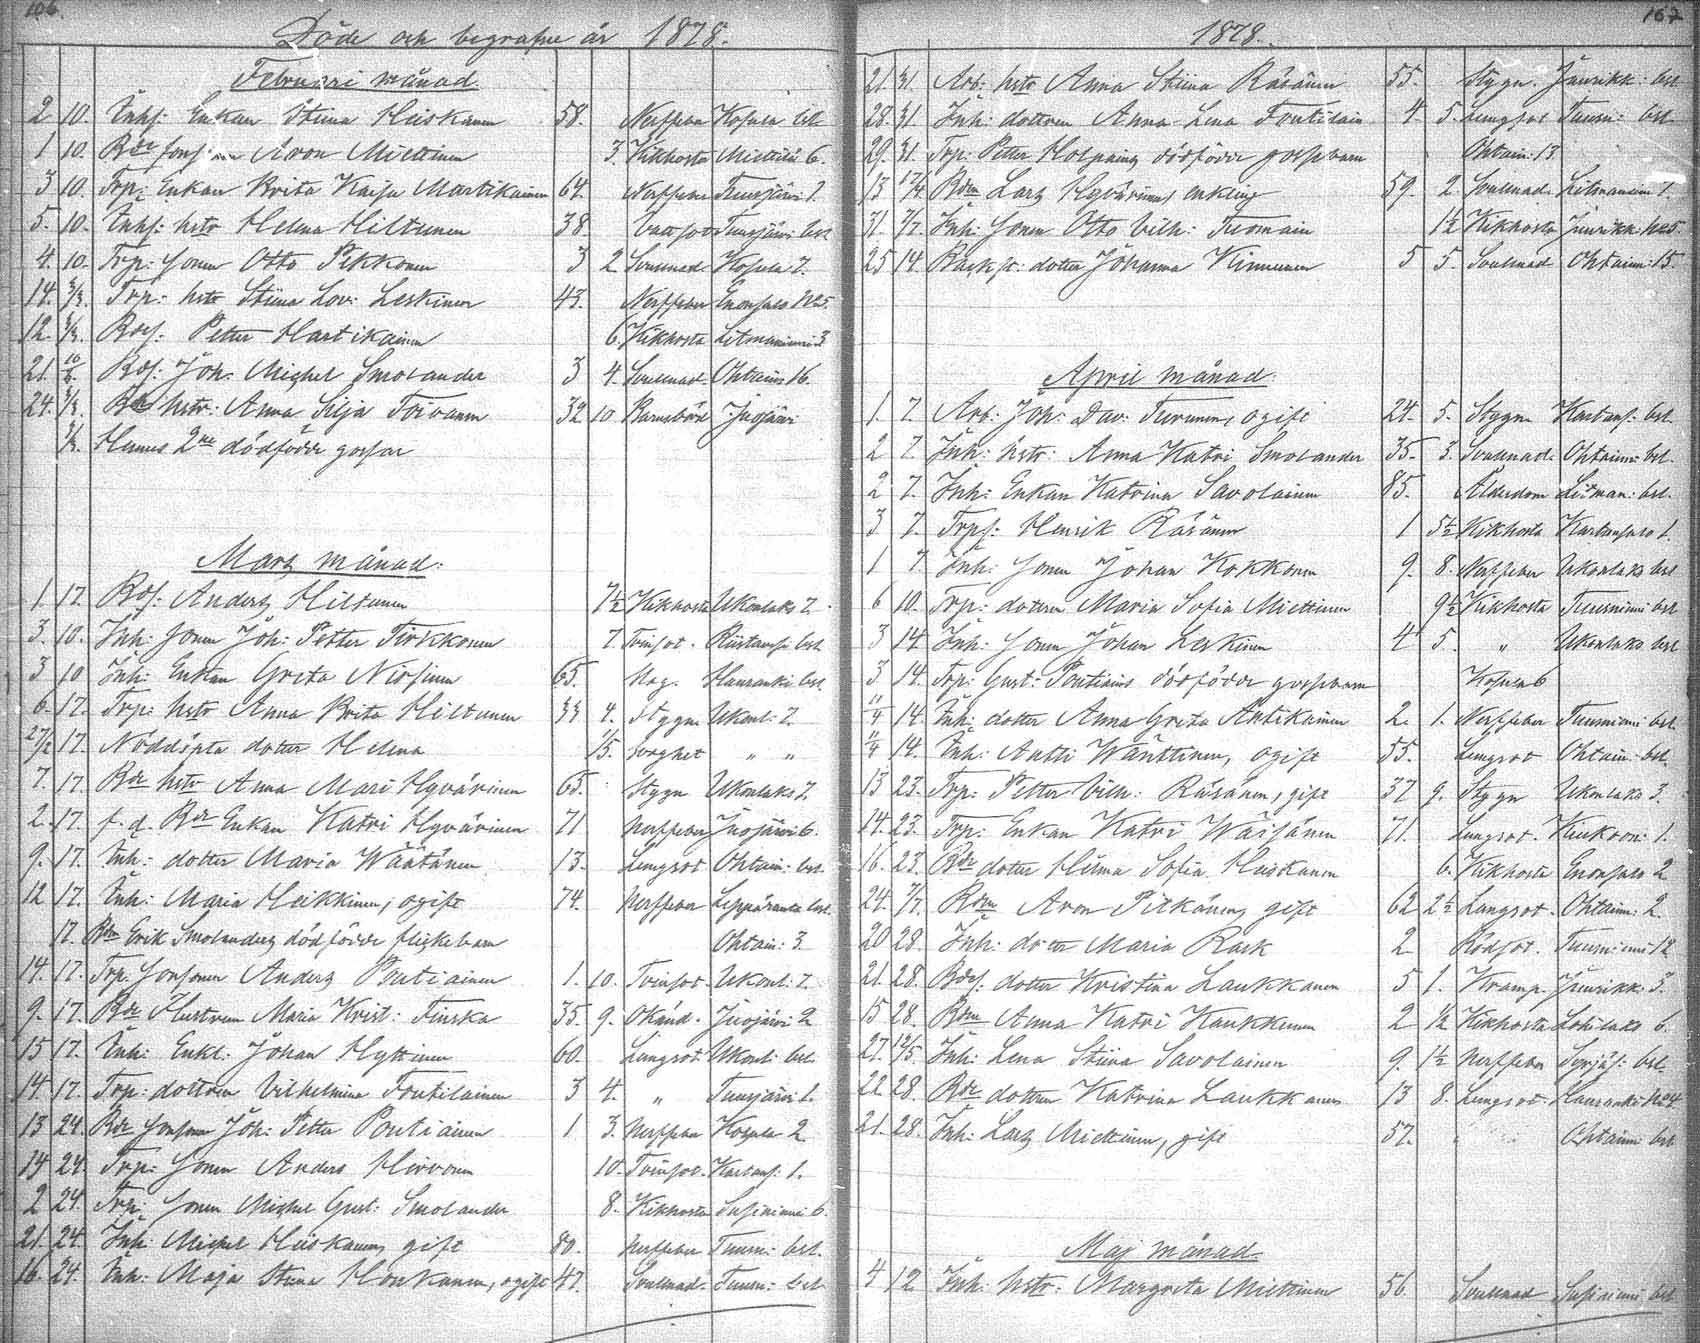 106.
Döde och begrafne år 1878.
Februari månad.
2 10. Inhs: Enkan Stina Hiiskanen 58. Nerffeber Kosula bel
1 10. Bde sonsonen Aron Miettinen 3. Kikhosta Miettilä 6.
3 10. Trp: Enkan Brita Kaisa Martikainen 64. Nerffeber Tuusjärvi 1.
5. 10. Inhs: hstr Helena Hiltunen 38. Tuusjärvi bel
4. 10. Trp: Sonen Otto Pekkonen 3 2 Svulnad Kosula 7.
14. 3/3. Trp: hstr Stiina Lov: Leskinen 43. Nerffeber Enonsalo No 5.
12. 3/3. Bds: Petter Martikainen 6. Kikhosta Litmaniemi 3
21. 10/3. Bds: Joh. Michel Smolander 3 4. Svulnad Ohtains 16.
24. 3/3. Bde hstr: Anna Silja Toivanen 32 10. Barnsbörd Juojärvi
3/3. Hennes 2ne dödfödde gossar
Marts månad.
1. 17. Bds: Anders Hiltunen 7½ Kikhosta Ukonlaks 7.
3. 10. Inh: Sonen Joh: Petter Pirkkonen 7. Tvinsot. bel.
3 10 Inh: Enkan Greta Niskinen 65. Hag. Hauranki bel.
6. 17. Trp: hstr Anna Brita Hiltunen 33 4. Stygn Ukonl: 7.
27/2 17. Nöddöpta dotter Helena 1/5. Svaghet " "
7. 17. Bde hstr Anna Mari Hyvärinen 65. Stygn Ukonlaks 7.
2. 17. f. d. Bde Enkan Katri Hyvärinen 71 Nerffeber Juojärvi 6.
9. 17. Inh: dotter Maria Väätänen 13. Lungsot Ohtain: bel.
12 17. Inh: Maria Heikkinen, ogift 74. Nerffeber Leppäranta bel.
17. Bdm Erik Smolanders dödfödde flickebarn Ohtain: 3.
14. 17. Trp: Sonsonen Anders Pantiainen 1. 10. Tvinsot. Ukonl: 7.
9. 17. Bde Hustrun Maria Krist: Finska 35. 9. Okänd. Juojärvi 2
15 17. Inh: Enkl: Johan Hyttinen 60. Lungsot Ukonl: bel.
14. 17. Trp: dottren Vilhelmina Foutilainen 3 4. " Tuusjärvi 1.
13 24. Bde Sonson Joh: Petter Pantiainen 1 3. Nerffeber Kosula 2
14 24. Trp: Sonen Anders Hirvonen 10. Tvinsot. Kartans: 1.
2 24. Trp: Sonen Michel Gust: Smolander 8. Kikhosta Susiniemi 6.
21. 24. Inh: Michel Hiiskanen, gift 80. Nerffeber Tuusn: bel.
16. 24. Inh: Maja Stina Honkanen, ogift 47. Svullnad. Tuusn: bel
167
1878.
21. 31. Arb: hstr Anna Stiina Räsänen 55. Stygn. Juurikk: bel
28. 31. Inh: dottren Anna Lena Foutilain 4. 5. Lungsot Tuusn: bel
29. 31. Trp: Petter Holpainens dödfödde gossebarn Ohtain: 13.
13 17/4 Bdm Lars Hyvärinen, enkling 59. 2. Svulnad. Litmaniemi 1.
31. 7/4. Inh: Sonen Otto Vilh: Tuomain 1½ Kikhosta Juurikk: No 5.
25 14. dotter Johanna Kinnunen 5 5. Svulnad Ohtaini: 15.
April månad.
1. 7. Arb: Joh: Dav: Turunen, ogift 24. 5. Stygn Kartans: bel
2 7. Inh: hstr: Anna Katri Smolander 35. 3. Svullnad. Ohtaini: bel.
2 7. Inh: Enkan Katrina Savolainen 85. Ålderdom Litman: bel.
3 7. Trps: Henrik Räsänen 1 5½ Kikhosta Kartansalo 1.
1 7. Inh: Sonen Johan Kokkonen 9. 8. Nerffeber Ukonlaks bel
6 10. Trp: dottren Maria Sofia Miettinen 9½ Kikhosta Tuusniemi bel
3 14 Inh: Sonen Johan Leskinen 4 5. " Ukonlaks bel
3 14. Trp: Gust: Pantiains dödfödde gossebarn Kosula 6
11/4 14. Inh: dotter Anna Greta Antikainen 2. 1. Nerffeber Tuusniemi bel.
11/4 14. Inh: Antti Wänttinen, ogift 55. Lungsot Ohtain: bel.
13 23. Trp: Petter Vilh: Räsänen, gift 37 9. Stygn Ukonlaks 3.
14. 23. Trp: Enkan Katri Wäisänen 71. Lungsot. 1.
16. 23. Bde dotter Hilma Sofia Hiiskanen 6. Kikhosta Enonsalo 2
24. 7/7. Bdm Aron Pitkänen, gift 62 2½ Lungsot. Ohtaini: 2.
20 28. Inh: dotter Maria Rask 2 Rödsot. Tuusniemi 12
21. 28. Bds: dotter Kristina Laukkanen 5 1. Kramp. Juurikk: 3.
15 28. Bdm Anna Katri Kaukkunen 2 ½ Kikhosta Lohilaks 6.
27. 12/5. Inh: Lena Stiina Savolainen 9. 1½ Nerffeber bel
22. 28. Bde dottren Katrina Laukkanen 13 8. Lungsot. Hauranki No 4
21. 28. Inh: Lars Miettinen, gift 57. " " Ohtaini bel
Maj månad.
4 12. Inh: hstr: Margreta Miettinen 56. Svullnad Susiniemi bel